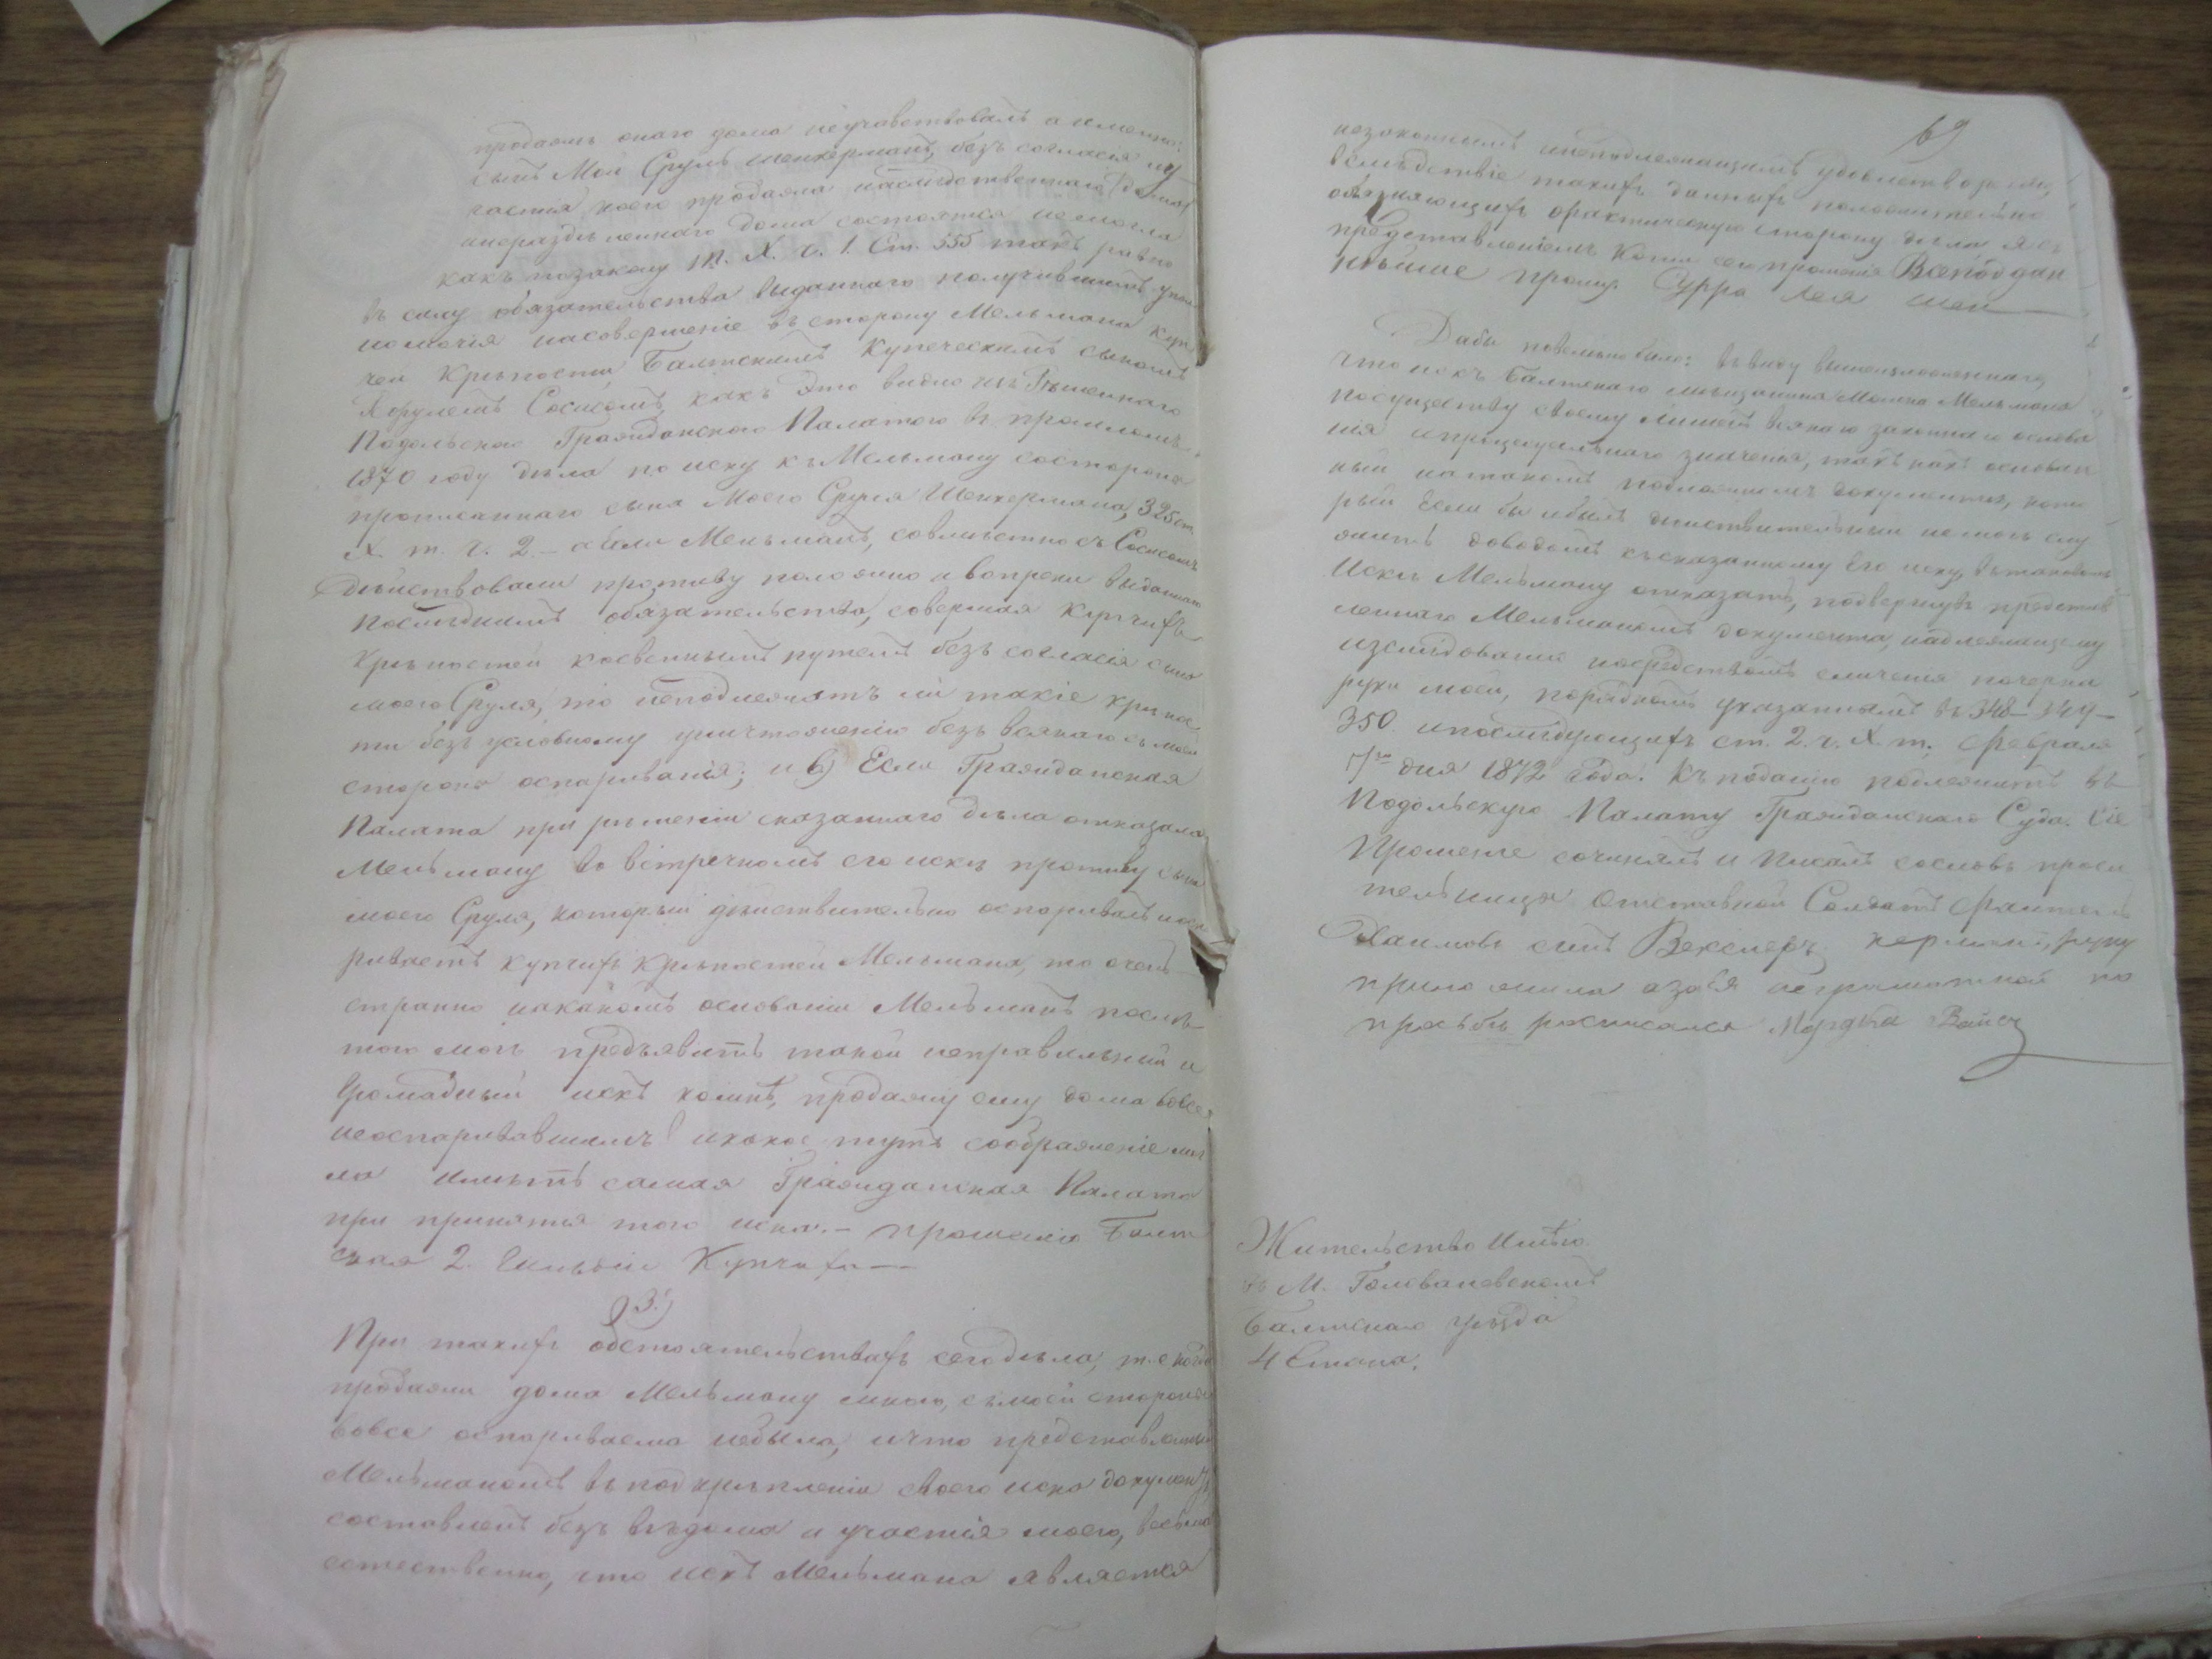 продажъ онаго дома неучавствовалъ а именно:
сынъ Мой Сруль Шенкерманъ, безъ согласія и у-
частія коего продажа наслѣдственнаго
инераздѣленнаго дома состоятся немогла
какъ позакону т. X. ч. 1. Ст. 555 такъ равно
въ силу обязательства выданнаго получившимъ упол
номочія насовершеніе въ сторону Мельмана куп
чей Крѣпости, Балтскимъ Купеческимъ сыномъ
Сосисомъ, какъ это видно изъ Рѣшеннаго
Подольскою Гражданскою Палатою въ прошломъ
1870 году дѣла по иску къ Мельману состороны
прописаннаго сына Моего Сруля Шенкермана, 325 ст.
X. т. ч. 2. – Мельманъ, совмѣстно съ Сосисомъ
Дѣйствовали противу положно и вопреки выданнаго
Послѣднимъ обязательства, совершая Купчихъ
Крѣпостей косвеннымъ путемъ безъ согласія сына
моего Сруля, то неподлежатъ ли такіе крѣпос
ти безъ условному уничтоженію безъ всякаго съ моей
стороны оспариванія; и в) Если Гражданская
Палата при рѣшеніи сказаннаго дѣла отказала
Мельману во встречномъ его искѣ противу сына
моего Сруля, который дѣйствительно оспаривалъ и оспа
риваетъ купчихъ крѣпостей Мельмана, то очень
странно накакомъ основаніи Мельманъ послѣ
того могъ предъявить такой неправильный и
Громадный искъ комнѣ, продажу ему дома вовсе
неоспаривавшимъ! икакое тутъ соображеніе мог
ла имѣть самая Гражданская Палата
при принятія того иска. – прошенію Балт
ская 2. Гильдіи Купчиха
3.)
При такихъ обстоятельствахъ сегодѣла, т. е. когда
продажа дома Мельману мною, съ моей стороны
вовсе оспариваема небыла, ичто представленный
Мельманомъ въ подкрѣпленіи своего иска документъ
составленъ безъ вѣдома и участія моего, весьма
естественно, что искъ Мельмана является
69
незаконнымъ инеподлежащимъ удовлетворенію,
вслѣдствіе такихъ данныхъ положительно
объясняющихъ фактическую сторону дѣла я съ
представленіемъ Копіи сего прошенія Всеподдан
нѣйше прошу. Сурра Лея Шен
Дабы повелено было: въ виду вышеизложеннаго
что искъ Балтскаго мѣщанина Мошка Мельмана
посуществу своему Лишенъ всякаго законнаго основа
нія ипроцессуальнаго значенія, такъ какъ основан
ный натакомъ подложномъ документѣ, кото
рый Если бы ибылъ дѣйствительный немогъ слу
жить доводомъ къ сказанному Его иску, въ таковомъ
Искѣ Мельману отказать, подвергнувъ представ
леннаго Мельманомъ документа, надлежащему
изслѣдованію посредствомъ сличенія почерка
руки моей, порядкомъ указаннымъ въ 348–349–
350 ипослѣдующихъ ст. 2. ч. X. т. Февраля
дня 1872 года. Къ поданію подлежитъ въ
Подольскую Палату Гражданскаго Суда. Сіе
Прошеніе сочинялъ и Писалъ сословъ проси
тельницы Отставной Солдатъ
Хаимовъ сынъ Векслеръ. руку
приложила азаея неграмотной по
прозьбѣ росписался Мордко
Жительство Имѣю
въ М. Голованевскомъ
Балтскаго уѣзда
4 Стана.